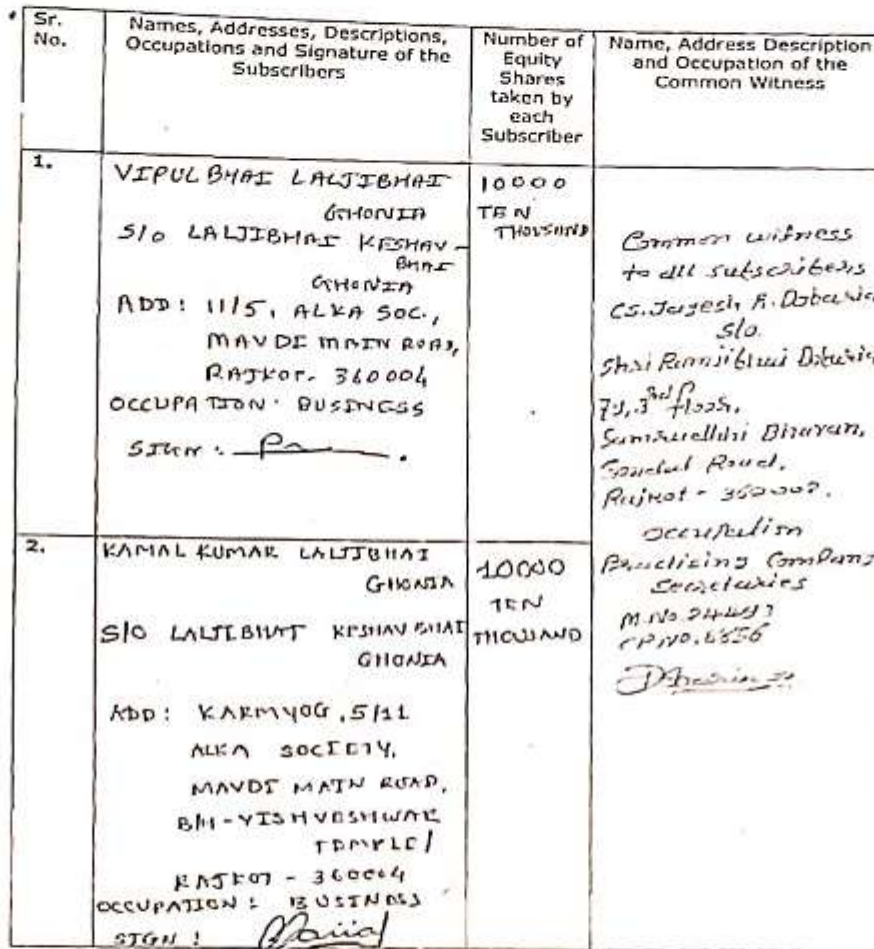 Sr.
No.
Names, Addresses, Descriptions,
Occupations and Signature of the
Subscribers
Number of
Equity
Shares
taken by
each
Subscriber
Name, Address Description
and Occupation of the
Common Witness
1.
VIPULBHAI LALJIBHAI
GHONIA
S/o LALJIBHAI KESHAV-
BHAI
GHONIA
ADD: 11/5, ALKA SOC.,
MAVDI MAIN ROAD,
RAJKOT. 360004
OCCUPATION: BUSINESS
SIGN:
10000
TEN
THOUSAND
Common witness
to all subscribers
CS. R.
S/o.
Shri
3rd floor,
Bhavan,
Road,
Rajkot -
occupation
Practicing Company
Secretaries
M.No.
CP.NO.
2.
KAMAL KUMAR LALJIBHAI
GHONIA
S/O LALJIBHAI KESHAVBHAI
GHONIA
ADD: KARMYOG, 5/11
ALKA SOCIETY,
MAVDI MAIN ROAD,
B/H - VISHVESHWAR
TEMPLE/
RAJKOT - 360004
OCCUPATION: BUSINESS
SIGN:
10000
TEN
THOUSAND